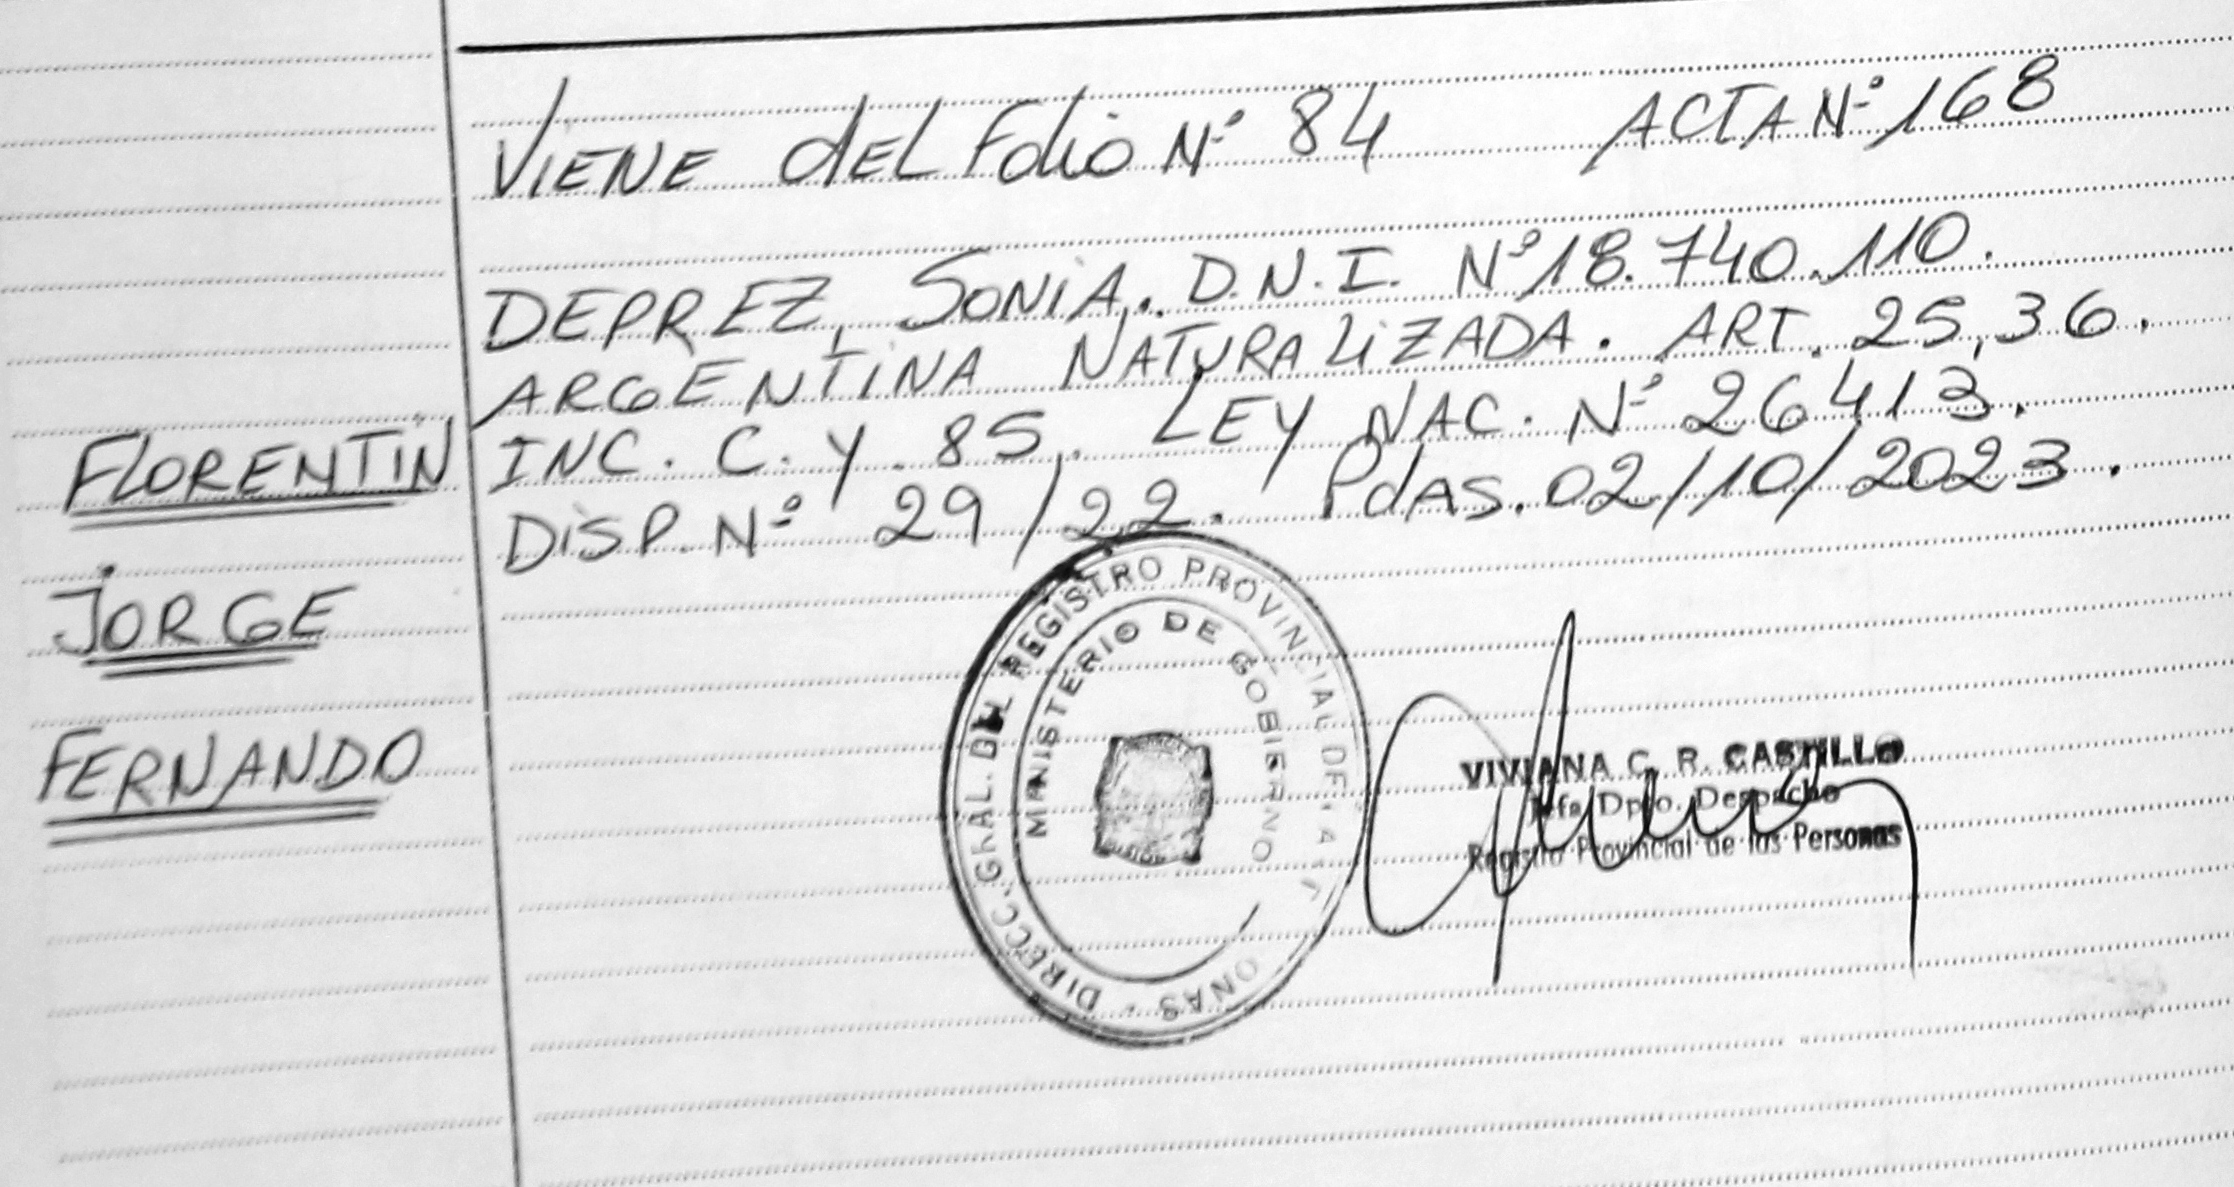 VIENE del Folio Nº 84 ACTA Nº 168
DEPREZ, SONIA. D.N.I. Nº 18.740.110.
ARGENTINA NATURALIZADA. ART. 25, 36.
INC. C. Y 85, LEY NAC. Nº 26413.
DISP. Nº 29/22. PdAS. 02/10/2023.
FLORENTIN
JORGE
FERNANDO
DIRECC. GRAL. DEL REGISTRO PROVINCIAL DE LAS
MINISTERIO DE GOBIERNO
VIVIANA C. R. CASTILLO
Jefa Dpto. Despacho
Registro Provincial de las Personas